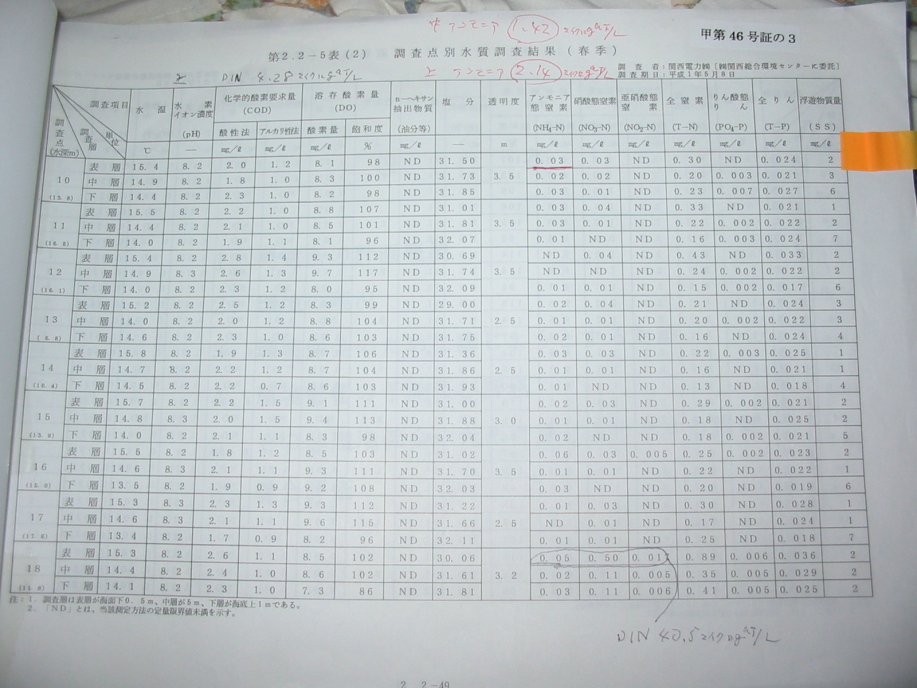 中 アンモニア 1.42 マイクロgat/L
甲第46号証の3
第2.2−5表(2) 調査点別水質調査結果(春季)
調査者:関西電力㈱[㈱関西総合環境センターに委託]
調査期日:平成1年5月8日
上 DIN 4.28 マイクロgat/L
上 アンモニア 2.14 マイクロgat/L
調査点(水深m) 調査層 調査項目 単位 水温 水素イオン濃度(pH) 化学的酸素要求量(COD) 溶存酸素量(DO) n−ヘキサン抽出物質(油分等) 塩分 透明度 アンモニア態窒素(NH₄-N) 硝酸態窒素(NO₃-N) 亜硝酸態窒素(NO₂-N) 全窒素(T−N) りん酸態りん(PO₄-P) 全りん(T−P) 浮遊物質量(SS)
酸性法 アルカリ性法 酸素量 飽和度
℃ — mg/ℓ mg/ℓ mg/ℓ % mg/ℓ — m mg/ℓ mg/ℓ mg/ℓ mg/ℓ mg/ℓ mg/ℓ mg/ℓ
表層 15.4 8.2 2.0 1.2 8.1 98 ND 31.50 0.03 0.03 ND 0.30 ND 0.024 2
10 中層 14.9 8.2 1.8 1.0 8.3 100 ND 31.73 3.5 0.02 0.02 ND 0.20 0.003 0.021 3
下層 14.4 8.2 2.3 1.0 8.2 98 ND 31.85 0.03 0.01 ND 0.23 0.007 0.027 6
表層 15.5 8.2 2.2 1.0 8.8 107 ND 31.01 0.03 0.04 ND 0.33 ND 0.021 1
11 中層 14.4 8.2 2.1 1.0 8.5 101 ND 31.81 3.5 0.03 0.01 ND 0.22 0.002 0.022 2
下層 14.0 8.2 1.9 1.1 8.1 96 ND 32.07 0.01 ND ND 0.16 0.003 0.024 7
表層 15.4 8.2 2.8 1.4 9.3 112 ND 30.69 ND 0.04 ND 0.43 ND 0.033 2
12 中層 14.9 8.3 2.6 1.3 9.7 117 ND 31.74 3.5 ND ND ND 0.24 0.002 0.022 2
下層 14.0 8.2 2.3 1.2 8.0 95 ND 32.09 0.01 0.01 ND 0.15 0.002 0.017 6
表層 15.2 8.2 2.5 1.2 8.3 99 ND 29.00 0.02 0.04 ND 0.21 ND 0.024 3
13 中層 14.0 8.2 2.0 1.2 8.8 104 ND 31.71 2.5 0.01 0.01 ND 0.20 0.002 0.022 3
下層 14.6 8.2 2.3 1.0 8.6 103 ND 31.75 0.01 0.01 ND 0.16 ND 0.024 4
表層 15.8 8.2 1.9 1.3 8.7 106 ND 31.36 0.03 0.03 ND 0.22 0.003 0.025 1
14 中層 14.7 8.2 2.2 1.2 8.7 104 ND 31.86 2.5 0.01 0.01 ND 0.16 ND 0.021 1
下層 14.5 8.2 2.2 0.7 8.6 103 ND 31.93 0.01 ND ND 0.13 ND 0.018 4
表層 15.7 8.2 2.2 1.5 9.1 111 ND 31.00 0.02 0.01 ND 0.29 0.002 0.021 2
15 中層 14.8 8.3 2.0 1.5 9.4 113 ND 31.88 3.0 0.01 0.01 ND 0.18 ND 0.025 2
下層 14.0 8.2 2.1 1.1 8.3 98 ND 32.04 0.02 ND ND 0.18 0.002 0.021 5
表層 15.5 8.2 1.8 1.2 8.5 103 ND 31.02 0.06 0.03 0.005 0.25 0.002 0.023 2
16 中層 14.6 8.3 2.1 1.1 9.3 111 ND 31.70 3.5 0.01 0.01 ND 0.22 ND 0.022 1
下層 13.5 8.2 1.9 0.9 9.2 108 ND 32.03 0.03 ND ND 0.20 ND 0.019 6
表層 15.3 8.3 2.3 1.3 9.3 112 ND 31.22 0.01 0.03 ND 0.30 ND 0.028 1
17 中層 14.6 8.3 2.1 1.1 9.6 115 ND 31.66 2.5 ND 0.01 ND 0.17 ND 0.024 1
下層 13.4 8.2 1.7 0.9 8.2 96 ND 32.11 0.01 0.01 ND 0.25 ND 0.018 7
表層 15.3 8.2 2.6 1.1 8.5 102 ND 30.06 0.05 0.50 0.01 0.89 0.006 0.036 2
18 中層 14.4 8.2 2.4 1.0 8.6 102 ND 31.61 3.2 0.02 0.11 0.005 0.35 0.005 0.029 2
下層 14.1 8.2 2.3 1.0 7.3 86 ND 31.81 0.03 0.11 0.006 0.41 0.005 0.025 2
注:1.調査層は表層が海面下0.5m、中層が5m、下層が海底上1mである。
2.「ND」とは、当該測定方法の定量限界値未満を示す。
DIN 40.5 マイクロgat/L
2.2−49